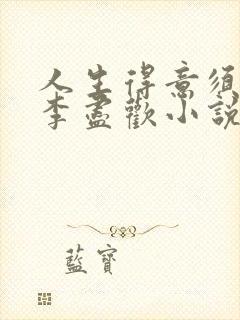 人生得意须
李盡歡小說
藍寶